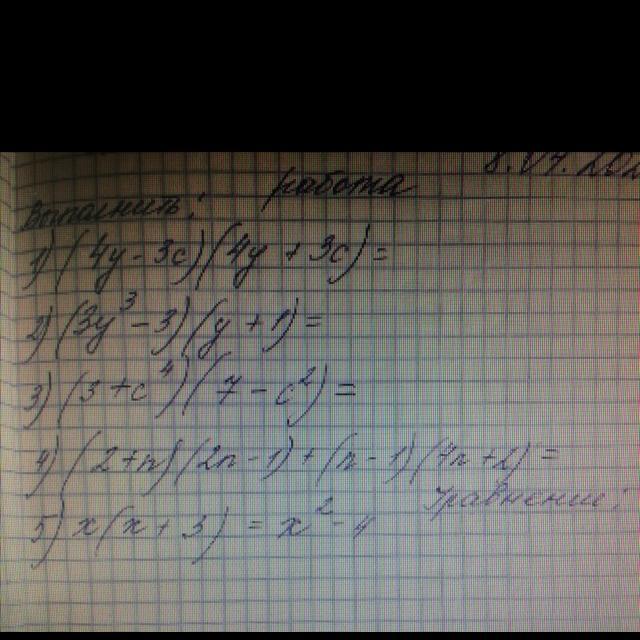 работа
Выполнить:
1) (4y - 3c)(4y + 3c) =
2) (3y³ - 3)(y + 1) =
3) (3 + c⁴)(7 - c²) =
4) (2+n)(2n - 1) + (n - 1)(4n + 2) =
уравнение:
5) x(x + 3) = x² - 4